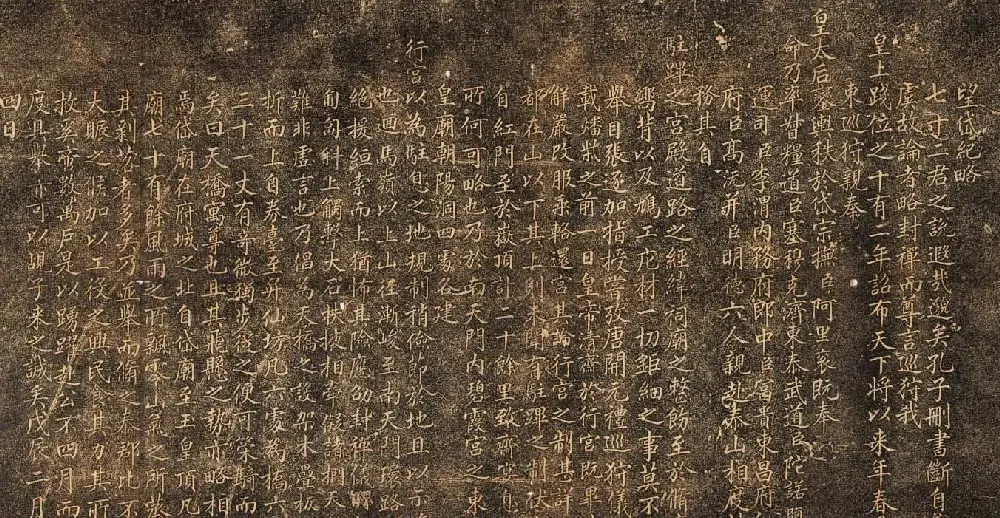 望岱紀略
七十二君之說遐哉邈矣孔子刪書斷自
虞故論者略封禪而尊言巡狩我
皇上踐位之十有二年詔布天下將以來年春
東巡狩親奉
皇太后鑾輿秋於岱宗撫臣阿里衮既奉
命乃率督糧道臣塞穆克濟東泰武道臣陀諾
運司臣李渭內務府郎中臣富貴東昌府
府臣高沆并臣明德六人親赴泰山相度
務其自
駐蹕之宮殿道路之經緯祠廟之整飭至於備
以及鳩工庀材一切鉅細之事莫不
舉目張逐加指授嘗攷唐開元禮巡狩儀
載燔柴之前一日皇帝清齋於行宮既畢
解嚴改服乘輅還宮其論行宮之制甚詳
都在山以下其上則未聞有駐蹕之制
自紅門至於嶽頂計二十餘里致齋
所何可略也乃於南天門內碧霞宮之東
皇廟朝陽洞四處各建
行宮以為駐息之地規制稍俗節於地且以示
也迴馬嶺以上山徑漸峻至南天門環路
絕援絙索而上猶怖其險應劭封禪儀
匍匐斜上觸擊大石拱掖相牽
難非虛言也乃倡為天橋之設架木疊板
折而上自券臺至昇仙坊凡六處為橋六
三十一丈有奇微獨步從之便可策騎而
矣曰天橋寓尊也且其懸之勢亦略相
焉岱廟在府城之北自岱廟至玉皇頂凡
廟七十有餘風雨之所飄零山氣之所蒸
其剝落者多矣乃並舉而脩之泰郡比不
大賑之候加以工役之興民食其力其所
救並帝數萬戶是以踴躍赴公不四月而
度具舉亦可以覘子來之誠矣戊辰二月
四日